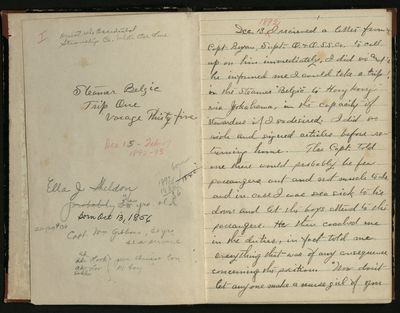 I
Oriental & Occidental
Steamship Co. White Star Line
Steamer Belgic
Trip One
Voyage Thirty five
Dec 15 - Feb 17
1892-93
Ella J. Sheldon
Probably yrs old
born Oct 13, 1856
Capt. Wm
1892
Dec 13. I received a letter from
Capt. Supt. O. & O. S.S. Co. to call
up on him immediately, I did so and
he informed me I could take a trip
in the Steamer "Belgic" to Hong Kong
via Yokohama, in the capacity of
Stewardess if I so desired. I did so
wish and signed articles before re-
turning home. The Capt. told
me there would probably be few
passengers out and not much to do
and in case I was sea sick to lie
down and let the boys attend to the
passengers. He then coached me
in the duties, in fact told me
everything that was of any consequence
concerning the position. "Now don't
let any one make a nurse girl of you